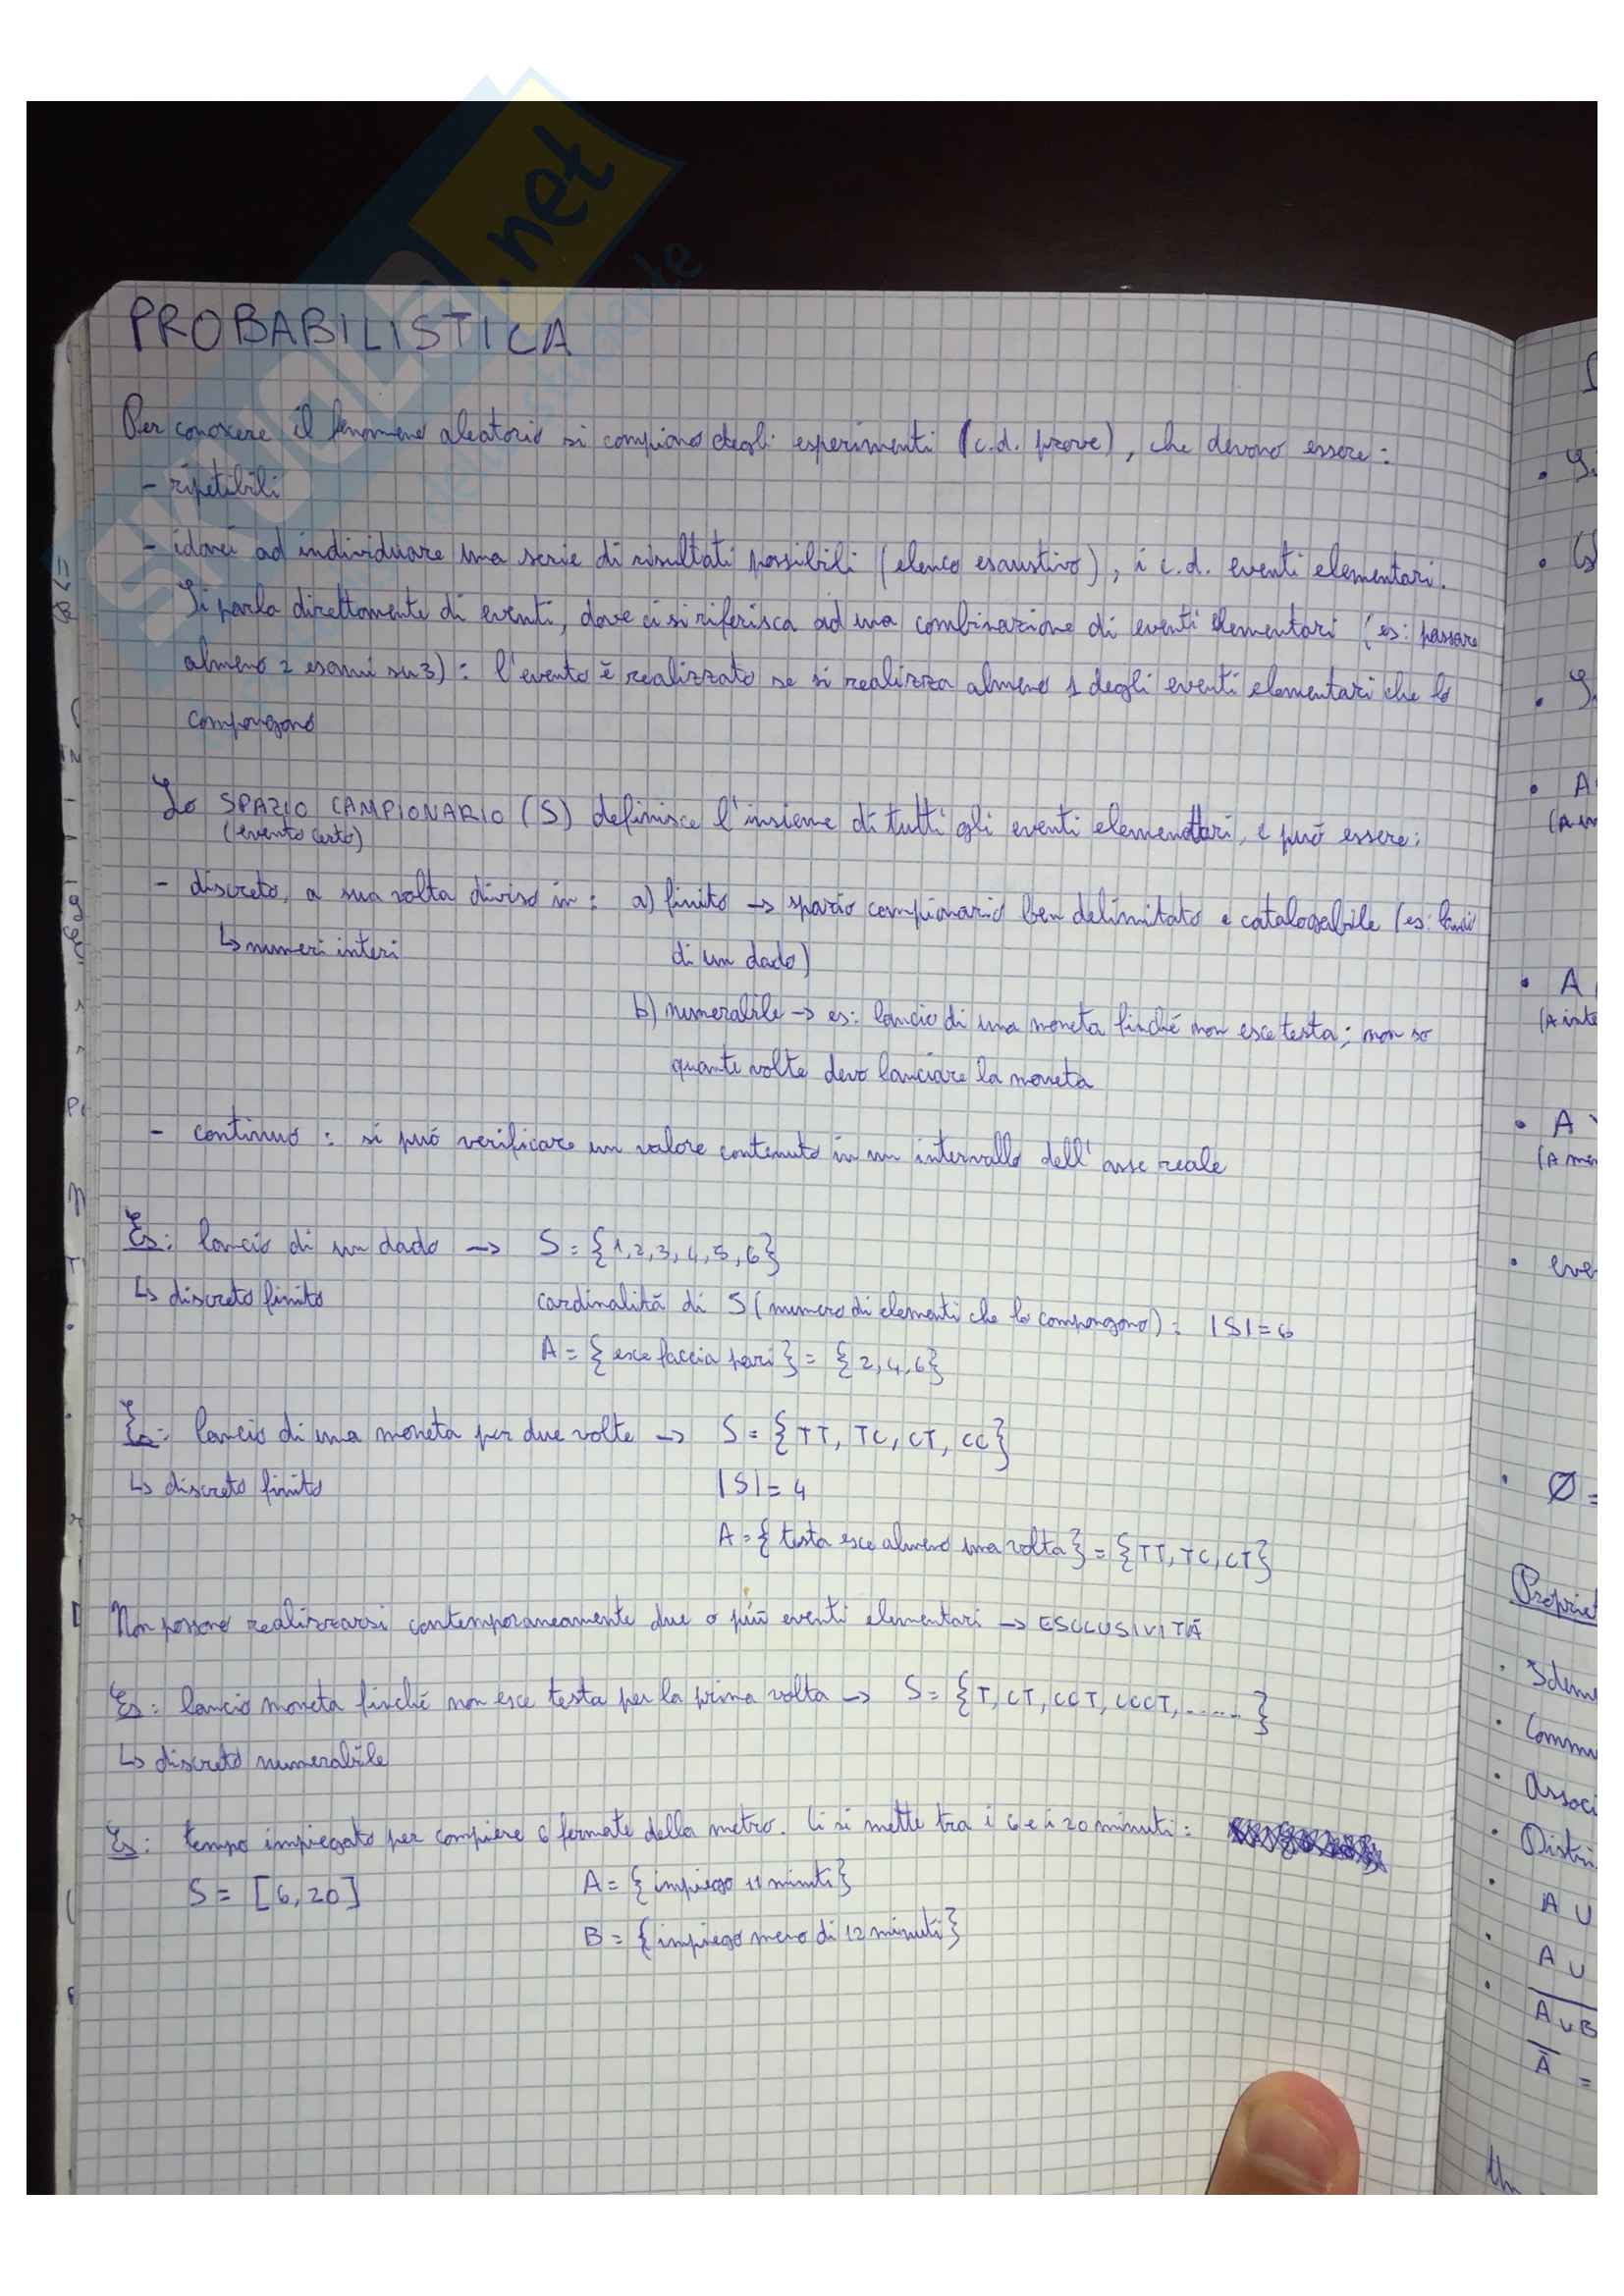 PROBABILISTICA
Per conoscere il fenomeno aleatorio si compiono degli esperimenti (c.d. prove), che devono essere:
- ripetibili
- idonei ad individuare una serie di risultati possibili (elenco esaustivo), i c.d. eventi elementari.
Si parla direttamente di eventi, dove ci si riferisca ad una combinazione di eventi elementari (es: passare
almeno 2 esami su 3): l'evento è realizzato se si realizza almeno 1 degli eventi elementari che lo
compongono
Lo SPAZIO CAMPIONARIO (S) definisce l'insieme di tutti gli eventi elementari, e può essere:
(evento certo)
- discreto, a sua volta diviso in: a) finito → spazio campionario ben delimitato e catalogabile (es: lancio
↳ numeri interi di un dado)
b) numerabile → es: lancio di una moneta finché non esce testa; non so
quante volte devo lanciare la moneta
- continuo: si può verificare un valore contenuto in un intervallo dell'asse reale
Es: lancio di un dado → S = {1,2,3,4,5,6}
↳ discreto finito cardinalità di S (numero di elementi che lo compongono): |S|=6
A = {esce faccia pari} = {2,4,6}
Es: lancio di una moneta per due volte → S = {TT, TC, CT, CC}
↳ discreto finito |S|= 4
A = {testa esce almeno una volta} = {TT, TC, CT}
Non possono realizzarsi contemporaneamente due o più eventi elementari → ESCLUSIVITÀ
Es: lancio moneta finché non esce testa per la prima volta → S = {T, CT, CCT, CCCT, ......}
↳ discreto numerabile
Es: tempo impiegato per compiere 6 fermate della metro. Ci si mette tra i 6 e i 20 minuti:
S = [6,20] A = {impiego 11 minuti}
B = {impiego meno di 12 minuti}
A
(A in
A
(A inte
A
(A me
eve
∅ =
Propriet
Idem
Commu
Associ
Distri
A ∪
A ∪
A ∪ B
Ā =
SKUOLA.net